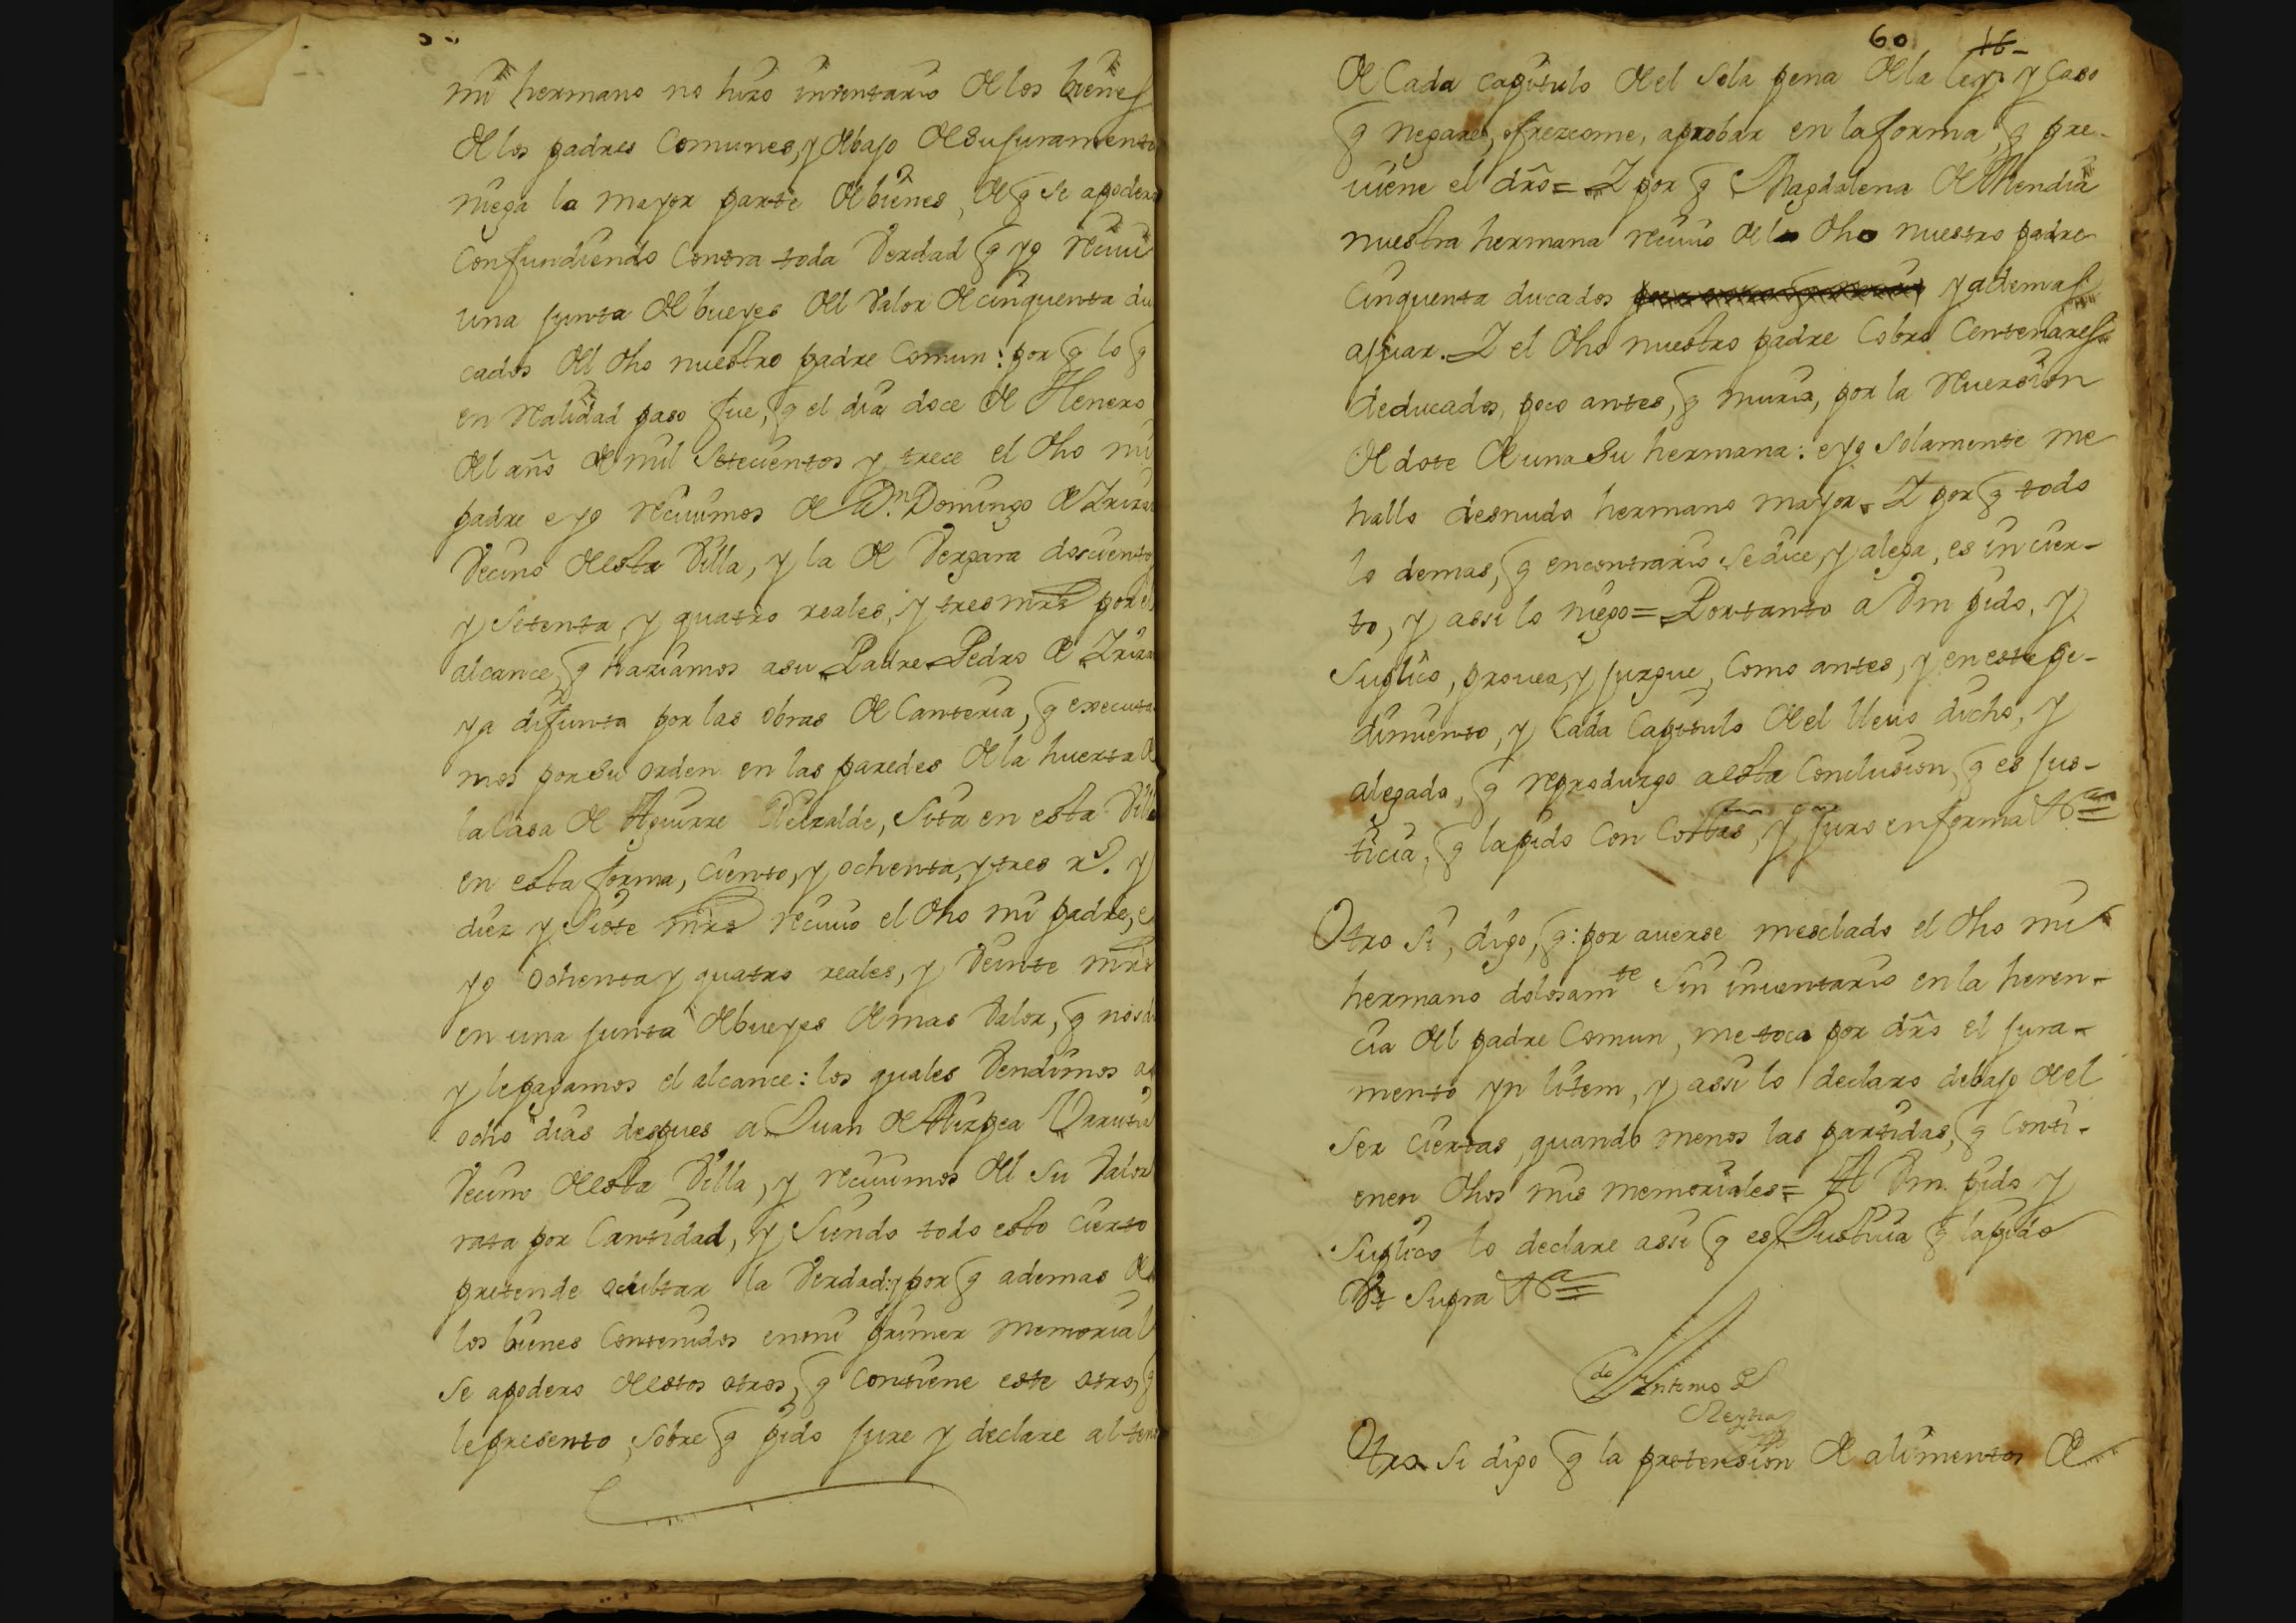 mi hermano no hizo inventario de los bienes
de los padres Comunes, y debajo de su juramento
niega la mayor parte de bienes, de q se apodero
confundiendo Contra toda Verdad q yo reciui
una junta de bueyes del Valor de cinquenta du
cados del dho nuestro padre Comun: por q lo q
en realidad paso fue, q el dia doce de Henero
del año de mil Setecientos y trece el dho mi
padre e yo reciuimos de Dn. Domingo de
Vecino de esta Villa, y la de Vergara doscientos
y Setenta, y quatro reales, y tres mrs por el
alcance q haziamos a su Padre Pedro de
ya difunto por las obras de Canteria, q executa
mos por su orden en las paredes de la huerta de
la Casa de Aguirre Elizalde, Sita en esta Villa
en esta forma, Ciento, y ochenta, y tres rs. y
diez y Siete mrs reciuio el dho mi padre, e
yo ochenta y quatro reales, y Veinte mrs
en una junta de bueyes de mas Valor, q nos dio
y le pagamos el alcance: los quales Vendimos a
ocho dias despues a Juan de Aizpea Vrrutia
Vecino de esta Villa, y reciuimos del su Valor
rata por Cantidad, y Siendo todo esto Cierto
pretende ocultar la Verdad: y por q ademas de
los bienes Contenidos en mi primer memorial
se apodero de estos otros, q contiene este otro, q
le presento, sobre q pido jure y declare al tenor
60 16
de Cada capitulo de el Sola pena de la ley, y Caso
q negare, ofrezcome, aprobar en la forma, q pre-
uiene el dro= Y por q Magdalena de Mendia
nuestra hermana reciuio de lo dho nuestro padre
Cinquenta ducados y ademas
ajuar. Y el dho nuestro padre Cobro Centenares
de ducados, poco antes, q muria, por la reuersion
de dote de una Su hermana: e yo Solamente me
hallo desnudo hermano mayor. Y por q todo
lo demas, q en contrario Se dice, y alega, es incier-
to, y assi lo niego= Por tanto a Vm pido, y
Suplico, prouea, y juzgue, Como antes, y en este pe-
dimiento, y Cada Capitulo de el lleuo dicho, y
alegado, q reproduzgo a esta Conclusion, q es jus-
ticia, q la pido con Costas, y juro en forma Va
Otro Si, digo, q: por auerse mesclado el dho mi
hermano dolosamte Sin inuentario en la heren-
cia del padre Comun, me toca por dro el jura-
mento yn litem, y assi lo declaro debajo de el
Ser Ciertas, quando menos las partidas, q Conti-
enen dhos mis memoriales= A Vm. pido y
Suplico lo declare assi q es Justicia q la pido
Vt Supra Va
do Antonio
Otro Si digo q la pretension de alimentos de